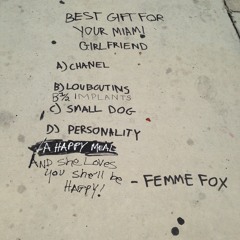 BEST GIFT FOR
YOUR MIAMI
GIRLFRIEND
A) CHANEL
B) LOUBOUTINS
B½ IMPLANTS
C) SMALL DOG
D) PERSONALITY
A HAPPY MEAL
AND She Loves
you she'll be
HAPPY!
- FEMME FOX